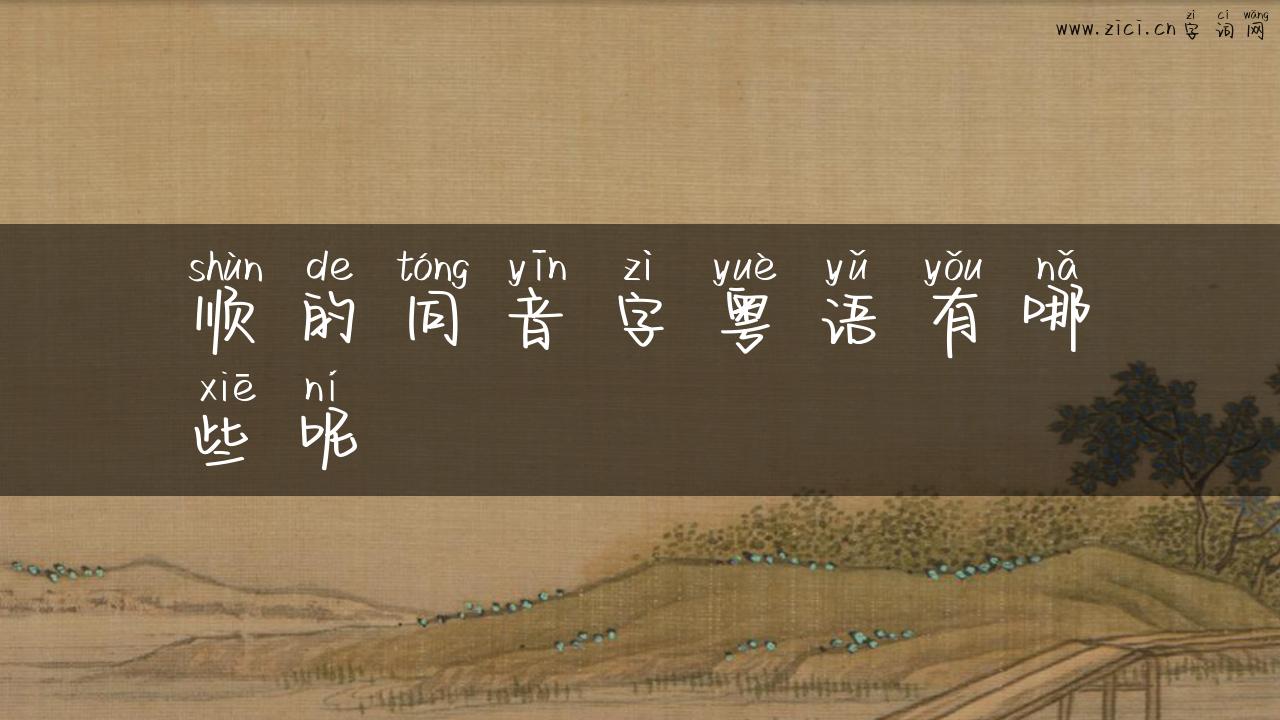 zì cí wǎng
www.zici.cn字词网
shùn de tóng yīn zì yuè yǔ yǒu nǎ
顺的同音字粤语有哪
xiē ní
些呢